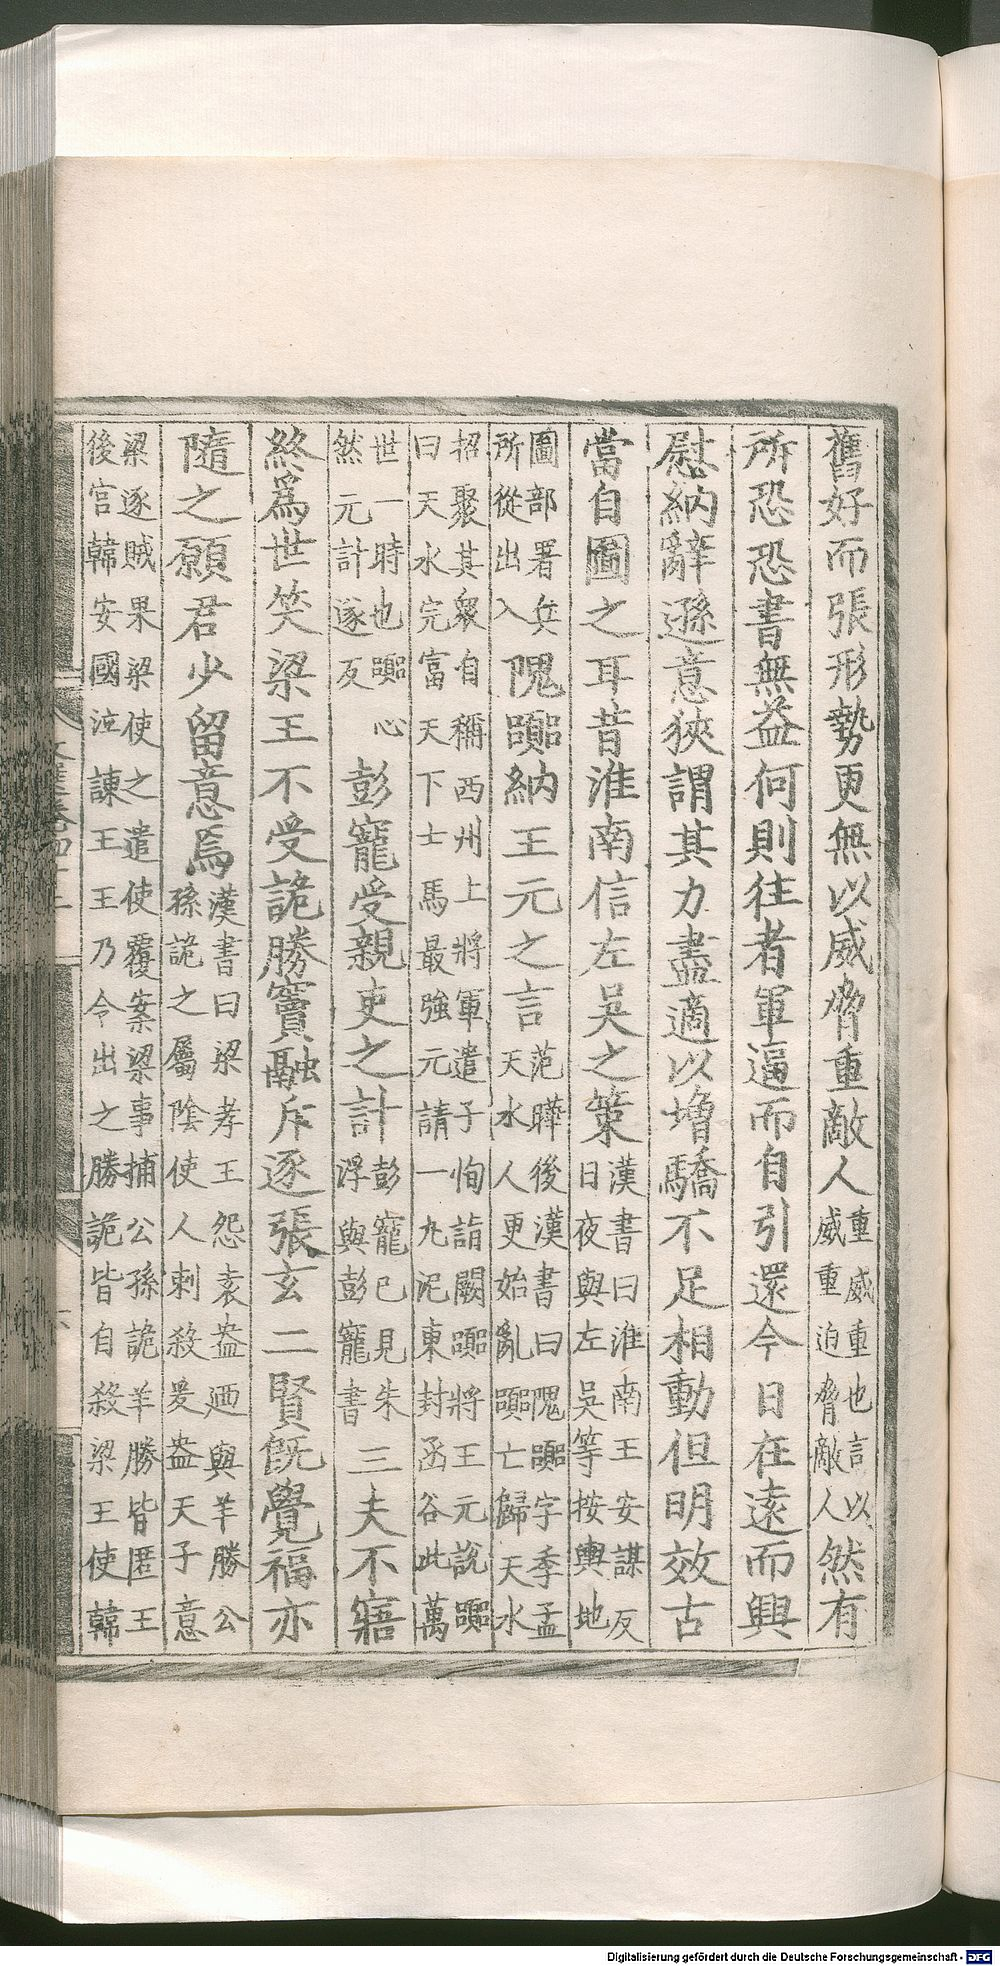 舊好而張形勢更無以威脅重敵人重威重也言以威重迫脅敵人然有
所恐恐書無益何則往者軍逼而自引還今日在遠而興
慰納辭遜意狹謂其力盡適以增驕不足相動但明效古
當自圖之耳昔淮南信左吳之策漢書曰淮南王安謀反日夜與左吳等按輿地
圖部署兵所從出入隗嚻納王元之言范曄後漢書曰隗嚻字季孟天水人更始亂嚻亡歸天水
招聚其衆自稱西州上將軍遣子恂詣闕嚻將王元說嚻曰天水完富天下士馬最強元請一九泥東封函谷此萬
世一時也嚻心然元計遂反彭寵受親吏之計彭寵已見朱浮與彭寵書三夫不寤
終爲世笑梁王不受詭勝竇融斥逐張玄二賢旣覺福亦
隨之願君少留意焉漢書曰梁孝王怨袁盎迺與羊勝公孫詭之屬陰使人刺殺爰盎天子意
梁逐賊果梁使之遣使覆案梁事捕公孫詭羊勝皆匿王後宮韓安國泣諫王王乃令出之勝詭皆自殺梁王使韓
Digitalisierung gefördert durch die Deutsche Forschungsgemeinschaft - DFG